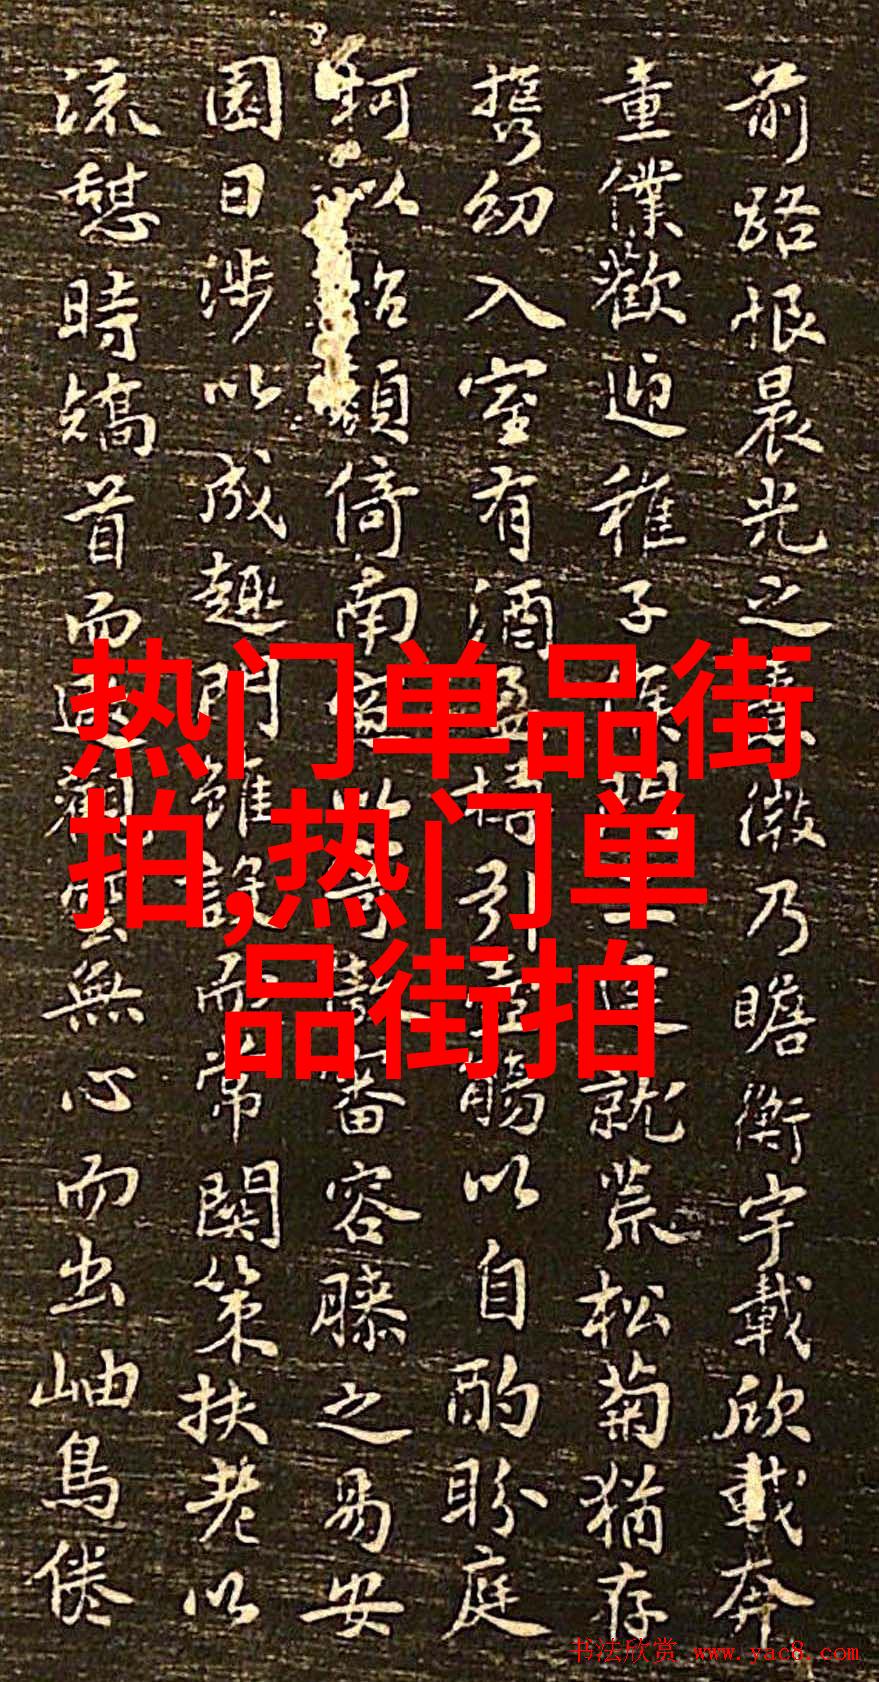 前路恨晨光之熹微乃瞻衡宇載欣載奔
童僕歡迎稚子候門三逕就荒松菊猶存
携幼入室有酒盈樽引壺觴以自酌盼庭
柯以怡顏倚南窗以寄傲審容膝之易安
園日涉以成趣門雖設而常関策扶老以
流憩時矯首而遐觀雲無心而出岫鳥倦
热门单品街
拍,热门单
品街拍
书法欣赏 www.yac8.com